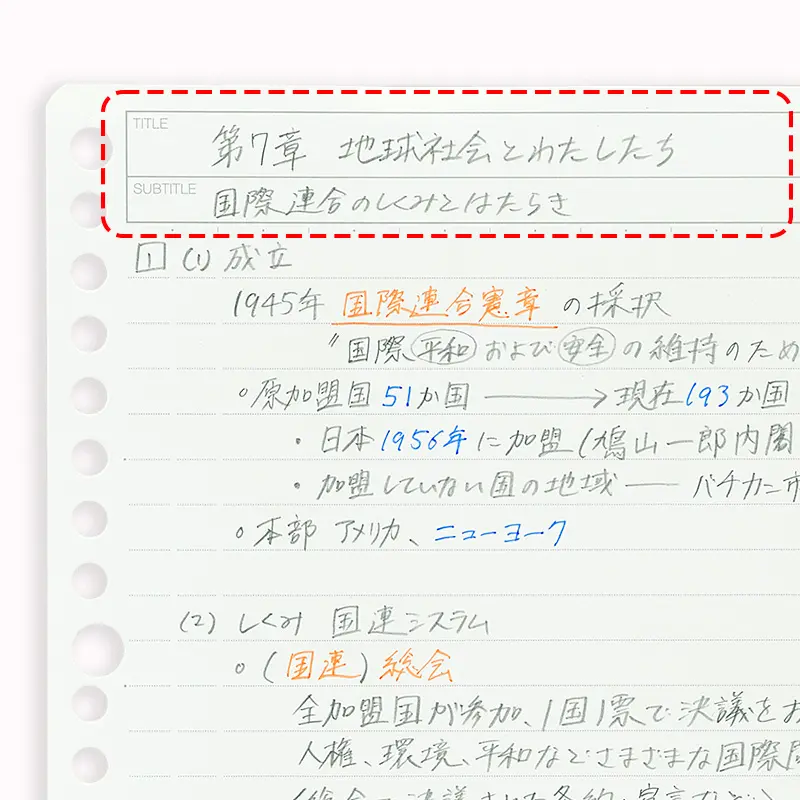 TITLE
第7章 地球社会とわたしたち
SUBTITLE
国際連合のしくみとはたらき
1 (1) 成立
1945年 国際連合憲章 の採択
〃国際平和および安全の維持のため
・原加盟国 51か国 ――→ 現在193か国
・日本1956年に加盟(鳩山一郎内閣
・加盟していない国の地域 ―― バチカン市
・本部 アメリカ、ニューヨーク
(2) しくみ 国連システム
・(国連)総会
全加盟国が参加、1国1票で決議をお
人権、環境、平和などさまざまな国際問